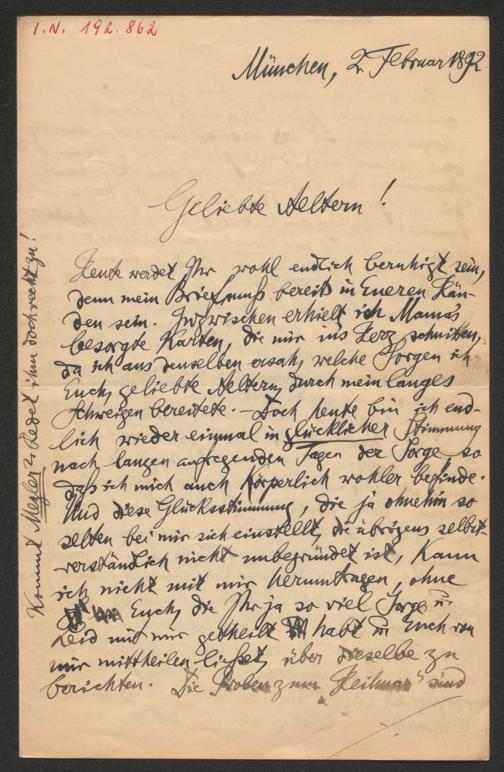 I.N. 192.862
München, 2. Februar 1892.
Geliebte Aeltern!
Heute werdet Ihr wohl endlich beruhigt sein,
denn mein Brief muß bereits in Eueren Hän-
den sein. Inzwischen erhielt ich Mama's
besorgte Karten, die mir ins Herz schnitten,
da ich aus denselben ersah, welche Sorgen ich
Euch, geliebte Aeltern, durch mein langes
Schweigen bereitete. – Doch heute bin ich end-
lich wieder einmal in glücklicher Stimmung
nach langen aufregenden Tagen der Sorge, so
daß ich mich auch körperlich wohler befinde.
Und diese Glücksstimmung, die ja ohnehin so
selten bei mir sich einstellt, die übrigens selbst-
verständlich nicht unbegründet ist, kann
ich nicht mit mir herumtragen, ohne
Euch, die Ihr ja so viel Sorge u.
Leid mit mir getheilt habt u. Euch von
mir mittheilen ließet, über dieselbe zu
berichten. Die Proben zum "Heilmar" sind
Kommt Mezler? Redet ihm doch recht zu!